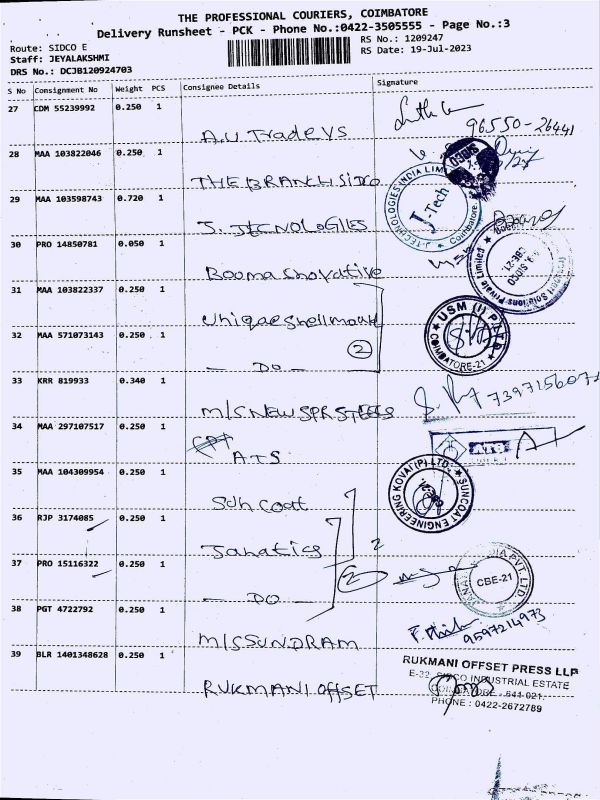 THE PROFESSIONAL COURIERS, COIMBATORE
Delivery Runsheet - PCK - Phone No.:0422-3505555 - Page No.:3
Route: SIDCO E
Staff: JEYALAKSHMI
DRS No.: DCJB120924703
RS No.: 1209247
RS Date: 19-Jul-2023
S No Consignment No Weight PCS Consignee Details Signature
27 CDM 55239992 0.250 1
A.U Tradeys
96550-26441
28 MAA 103822046 0.250 1
THE BRANCH SIDCO
29 MAA 103598743 0.720 1
J-TECHNOLOGIES INDIA LIMITED
J-Tech
Coimbatore
SIDCO
30 PRO 14850781 0.050 1
Solutions Private Limited
SIDCO
CBE-21.
31 MAA 103822337 0.250 1
32 MAA 571073143 0.250 1
DO
2
USM (I) P LTD
COIMBATORE-21
33 KRR 819933 0.340 1
M/S NEW SPR STEELS
34 MAA 297107517 0.250 1
ATS
35 MAA 104309954 0.250 1
Sun Coat
SUNCOAT ENGINEERING KOVAI (P) LTD.
36 RJP 3174085 0.250 1
Janatics
2
37 PRO 15116322 0.250 1
DO
2
PVT. LTD
CBE-21
38 PGT 4722792 0.250 1
M/S SUNDRAM
9597214973
39 BLR 1401348628 0.250 1
RUKMANI OFFSET
RUKMANI OFFSET PRESS LLP
E-32, SIDCO INDUSTRIAL ESTATE
COIMBATORE - 641 021.
PHONE : 0422-2672789